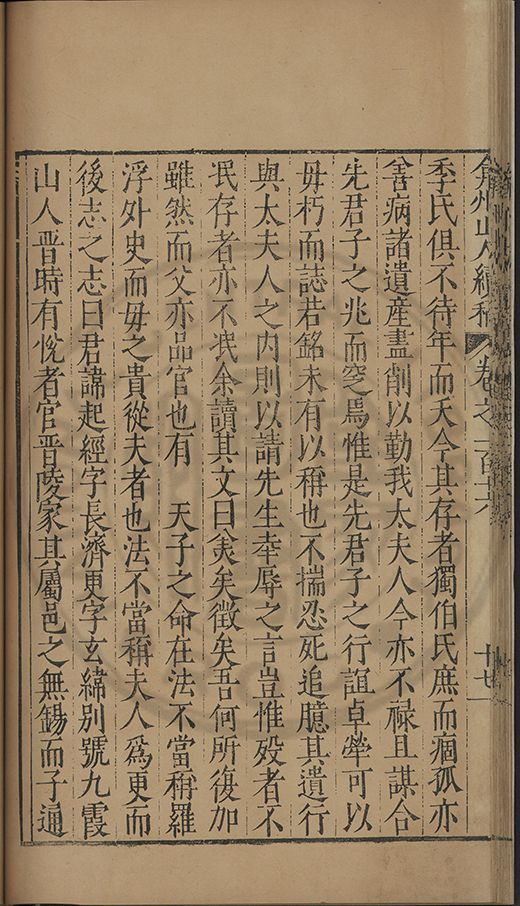 弇州山人續稿 卷之一百十六 十七
季氏俱不待年而夭今其存者獨伯氏庶而痼孤亦
善病諸遺產盡削以勤我太夫人今亦不祿且謀合
先君子之兆而窆焉惟是先君子之行誼卓犖可以
毋朽而誌若銘未有以稱也不揣忍死追臆其遺行
與太夫人之內則以請先生幸辱之言豈惟歿者不
泯存者亦不泯余讀其文曰美矣徵矣吾何所復加
雖然而父亦品官也有 天子之命在法不當稱羅
浮外史而毋之貴從夫者也法不當稱夫人為更而
後志之志曰君諱起經字長濟更字玄緯別號九霞
山人晉時有恱者官晉陵家其屬邑之無錫而子通